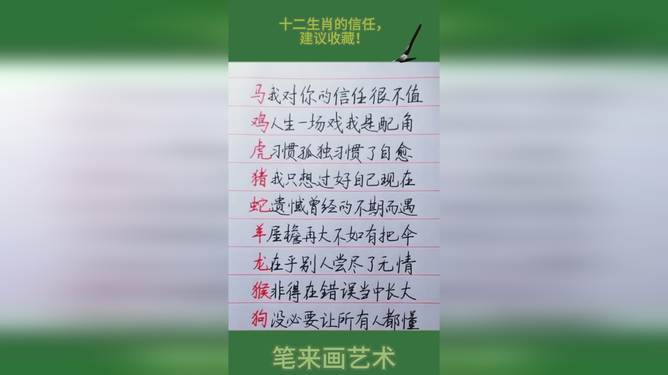 十二生肖的信任，
建议收藏！
马我对你的信任很不值
鸡人生一场戏我是配角
虎习惯孤独习惯了自愈
猪我只想过好自己现在
蛇遗憾曾经的不期而遇
羊屋檐再大不如有把伞
龙在乎别人尝尽了无情
猴非得在错误当中长大
狗没必要让所有人都懂
笔来画艺术